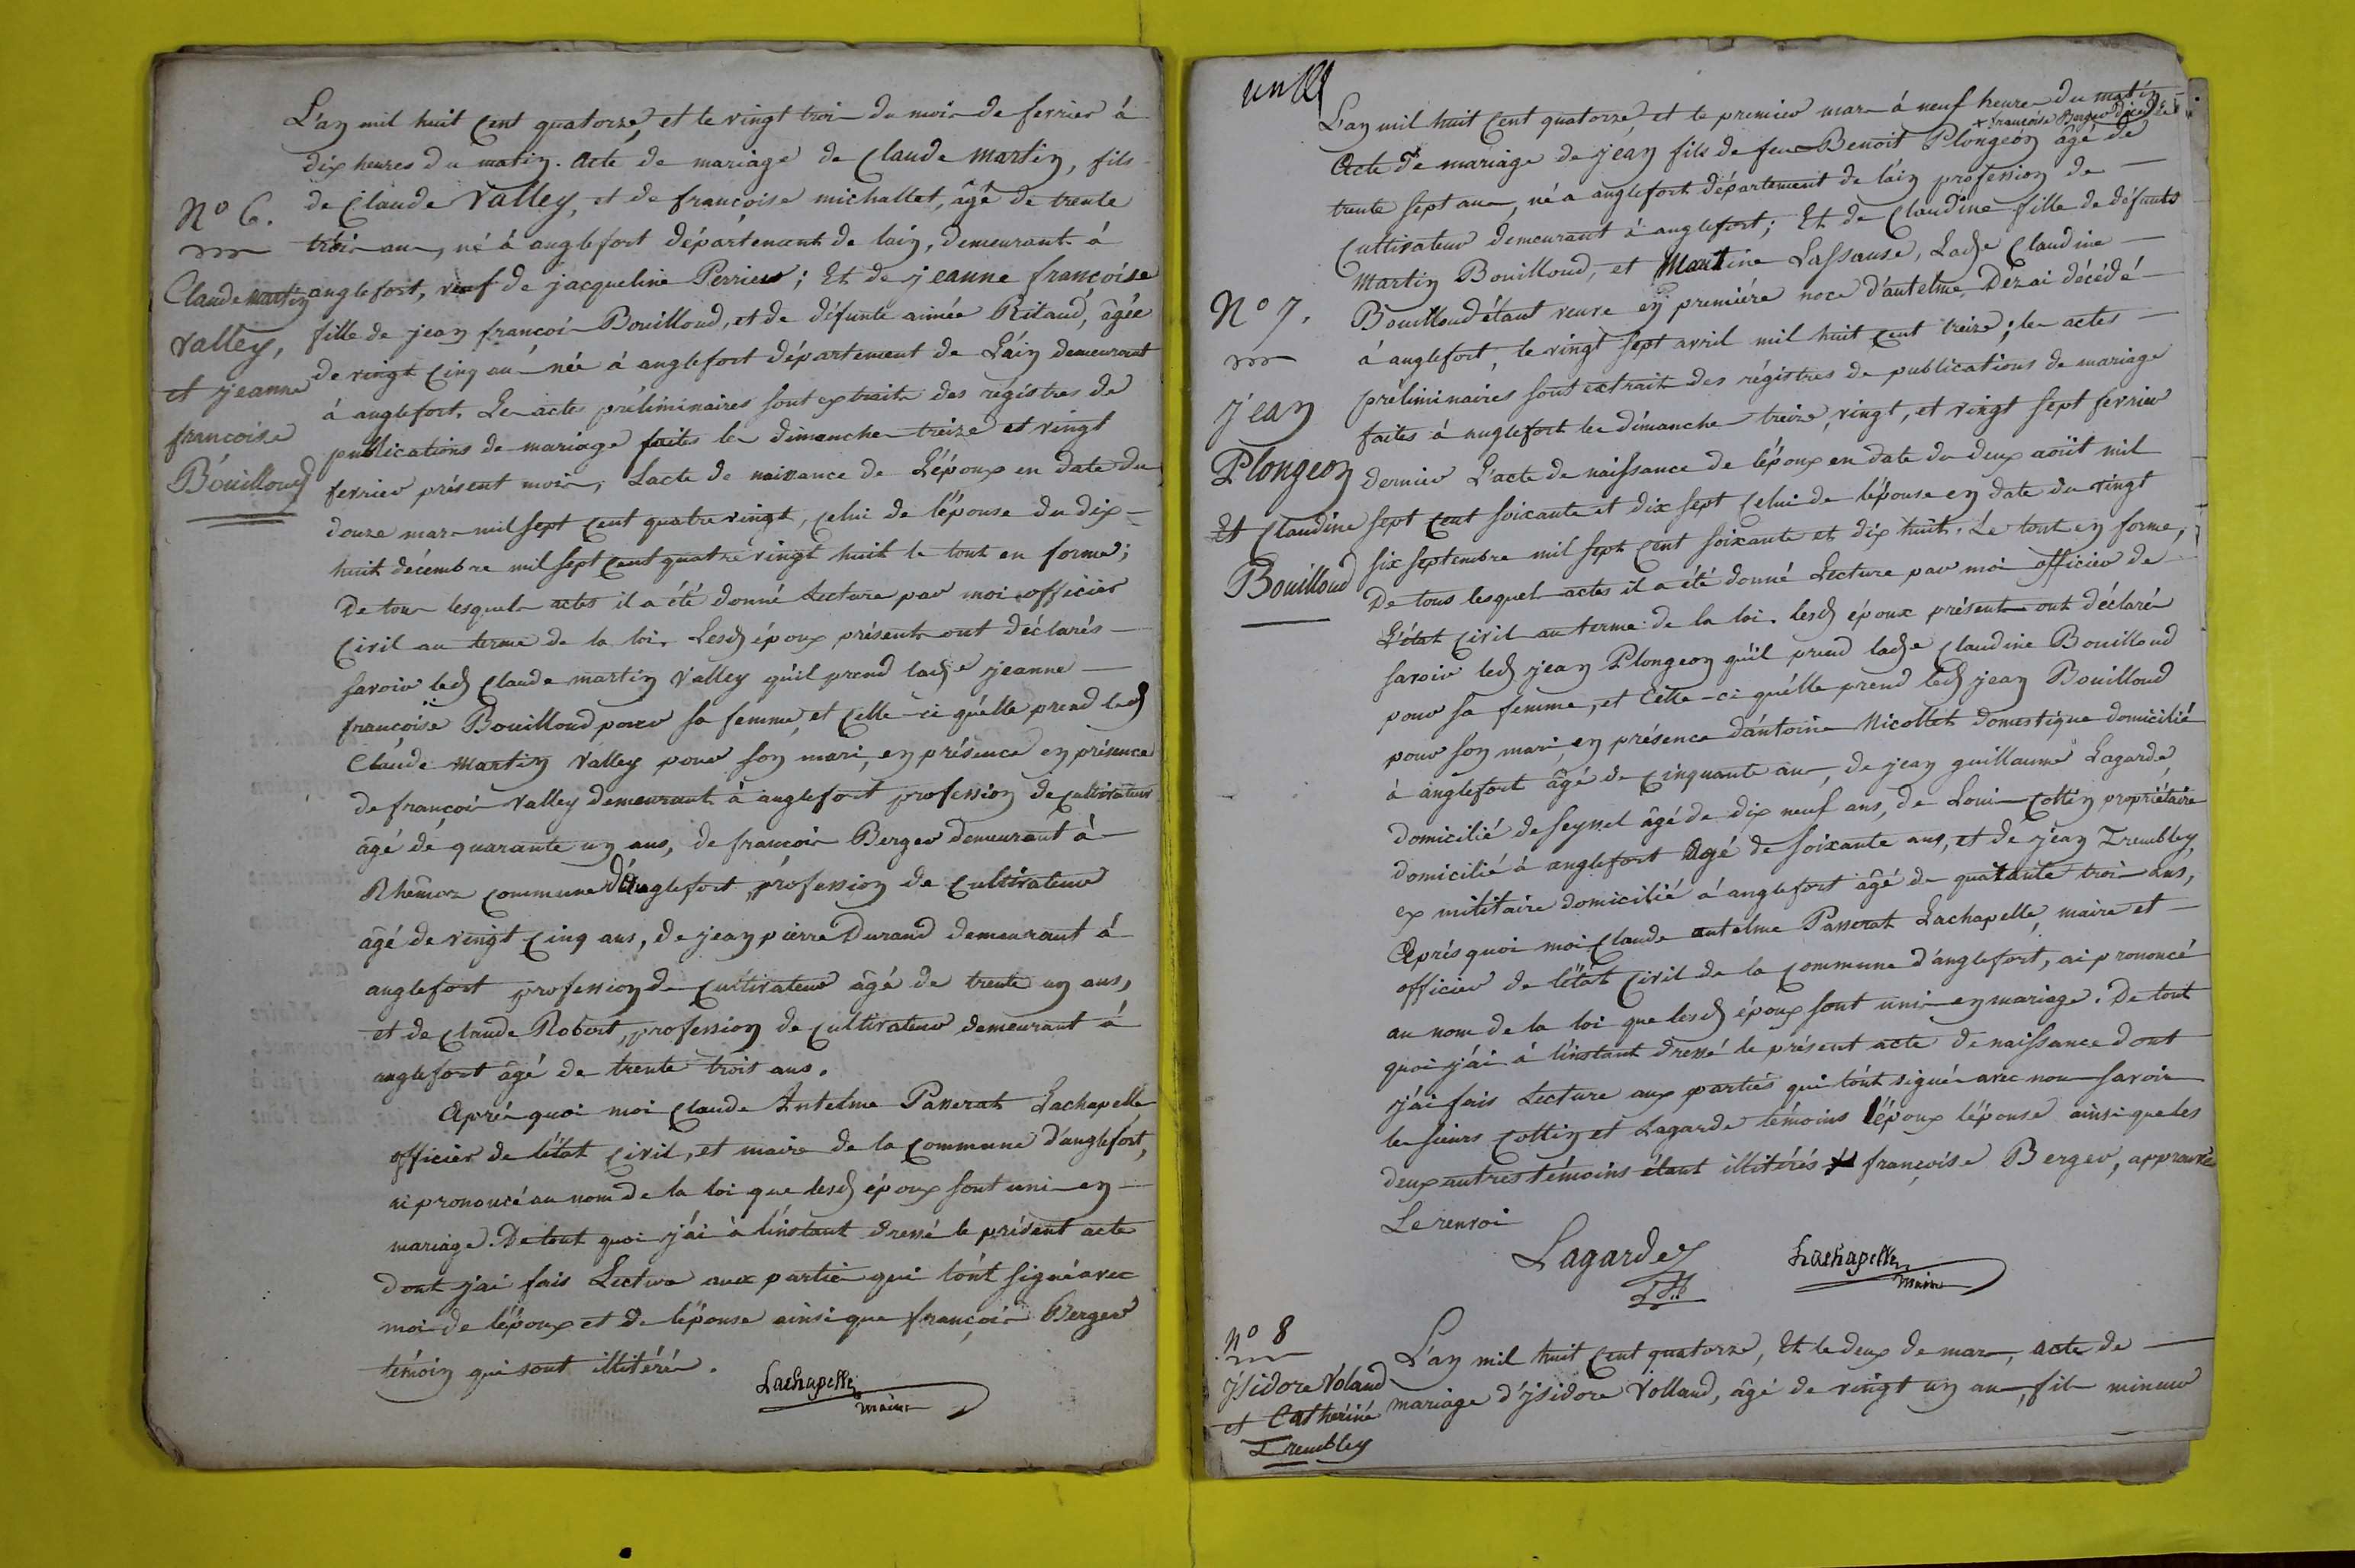 L'an mil huit Cent quatorze, et le vingt trois du mois de fevrier à
dix heures du matin. Acte de mariage de Claude Martin, fils
de Claude Valley, et de françoise michallet, âgé de trente
trois ans, né à anglefort département de lain, demeurant à
anglefort, veuf de jacqueline Perrier ; Et de jeanne françoise
fille de jean françois Bouilloud, et de défunte aimée Ritaud, âgée
de vingt cinq ans née à anglefort département de L'ain demeurant
à anglefort. Les actes préliminaires sont extraits des régistres de
publications de mariage faites les dimanches treize et vingt
fevrier présent mois, Lacte de naissance de L'époux en date du
douze mars mil sept Cent quatre vingt, celui de l'épouse du dix
huit décembre mil sept Cent quatre vingt huit le tout en forme ;
De tous lesquels actes il a été donné Lecture par moi officier
Civil au terme de la loi. Lesd époux présents ont déclarés
savoir led Claude martin Valley qu'il prend lade jeanne
françoise Bouilloud pour sa femme, et Celle-ci qu'elle prend led
Claude Martin Valley pour son mari, en présence en présence
de françois Valley demeurant à anglefort profession de cultivateur
âgé de quarante un ans, de françois Berger demeurant à
Rhemoz commune d'anglefort, profession de Cultivateur
âgé de vingt Cinq ans, de jean pierre Durand demeurant à
anglefort profession de Cultivateur âgé de trente un ans,
et de Claude Robert, profession de Cultivateur demeurant à
anglefort âgé de trente trois ans.
Après quoi moi Claude Antelme Passerat Lachapelle
officier de l'état Civil, et maire de la Commune d'anglefort,
ai prononcé au nom de la loi que lesd époux sont unis en
mariage. De tout quoi j'ai à l'instant dressé le présent acte
dont j'ai fais Lecture aux parties qui l'ont signé avec
moi de l'époux et de l'épouse ainsi que françois Berger
témoin qui sont illitérés.
Lachapelle
maire
N° 6.
Claude Martin
Valley,
et jeanne
françoise
Bouilloud
L'an mil huit Cent quatorze, et le premier mars à neuf heures du matin
x françoise Berger décédée
Acte de mariage de jean fils de feu Benoit Plongeon âgé de
trente sept ans, né a anglefort département de l'ain profession de
Cultivateur demeurant à anglefort ; Et de Claudine fille de défunts
Martin Bouilloud, et Martine Lassause, Lade Claudine
Bouilloud étant veuve en première noce d'antelme Dézai décédé
à anglefort, le vingt sept avril mil huit Cent treize ; les actes
préliminaires sont extraits des régistres de publications de mariage
faites à anglefort les dimanches treize, vingt, et vingt sept fevrier
dernier L'acte de naissance de l'époux en date du deux août mil
sept Cent soixante et dix sept Celui de l'épouse en date du vingt
six septembre mil sept Cent soixante et dix huit. Le tout en forme,
De tous lesquels actes il a été donné Lecture par moi officier de
L'état Civil au terme de la loi. lesd époux présents ont déclarés
savoir led jean Plongeon qu'il prend lade Claudine Bouilloud
pour sa femme, et Celle-ci qu'elle prend led jean Bouilloud
pour son mari en présence d'antoine Nicollet domestique domicilié
à anglefort âgé de Cinquante ans, de jean guillaume Lagarde
domicilié de seyssel âgé de dix neuf ans, de Louis Cottin propriétaire
domicilié à anglefort agé de soixante ans, et de jean Trembley,
ex militaire domicilié à anglefort âgé de quarante trois ans,
Après quoi moi Claude antelme Passerat Lachapelle, maire et
officier de l'état Civil de la Commune d'anglefort, ai prononcé
au nom de la loi que lesd époux sont unis en mariage. De tout
quoi j'ai à l'instant dressé le présent acte de naissance dont
j'ai fais Lecture aux parties qui l'ont signés avec nous savoir
les sieurs Cottin et Lagarde témoins l'époux l'épouse ainsi que les
deux autres témoins étant illitérés x françoise Berger, approuvé
Le renvoi
Lagarde
Lachapelle
maire
N° 7.
jean
Plongeon
et Claudine
Bouilloud
N° 8
L'an mil huit Cent quatorze, Et le deux de mars, acte de
mariage d'ysidore Volland, âgé de vingt un ans, fils mineur
ysidore Voland
et Catherine
Trembley